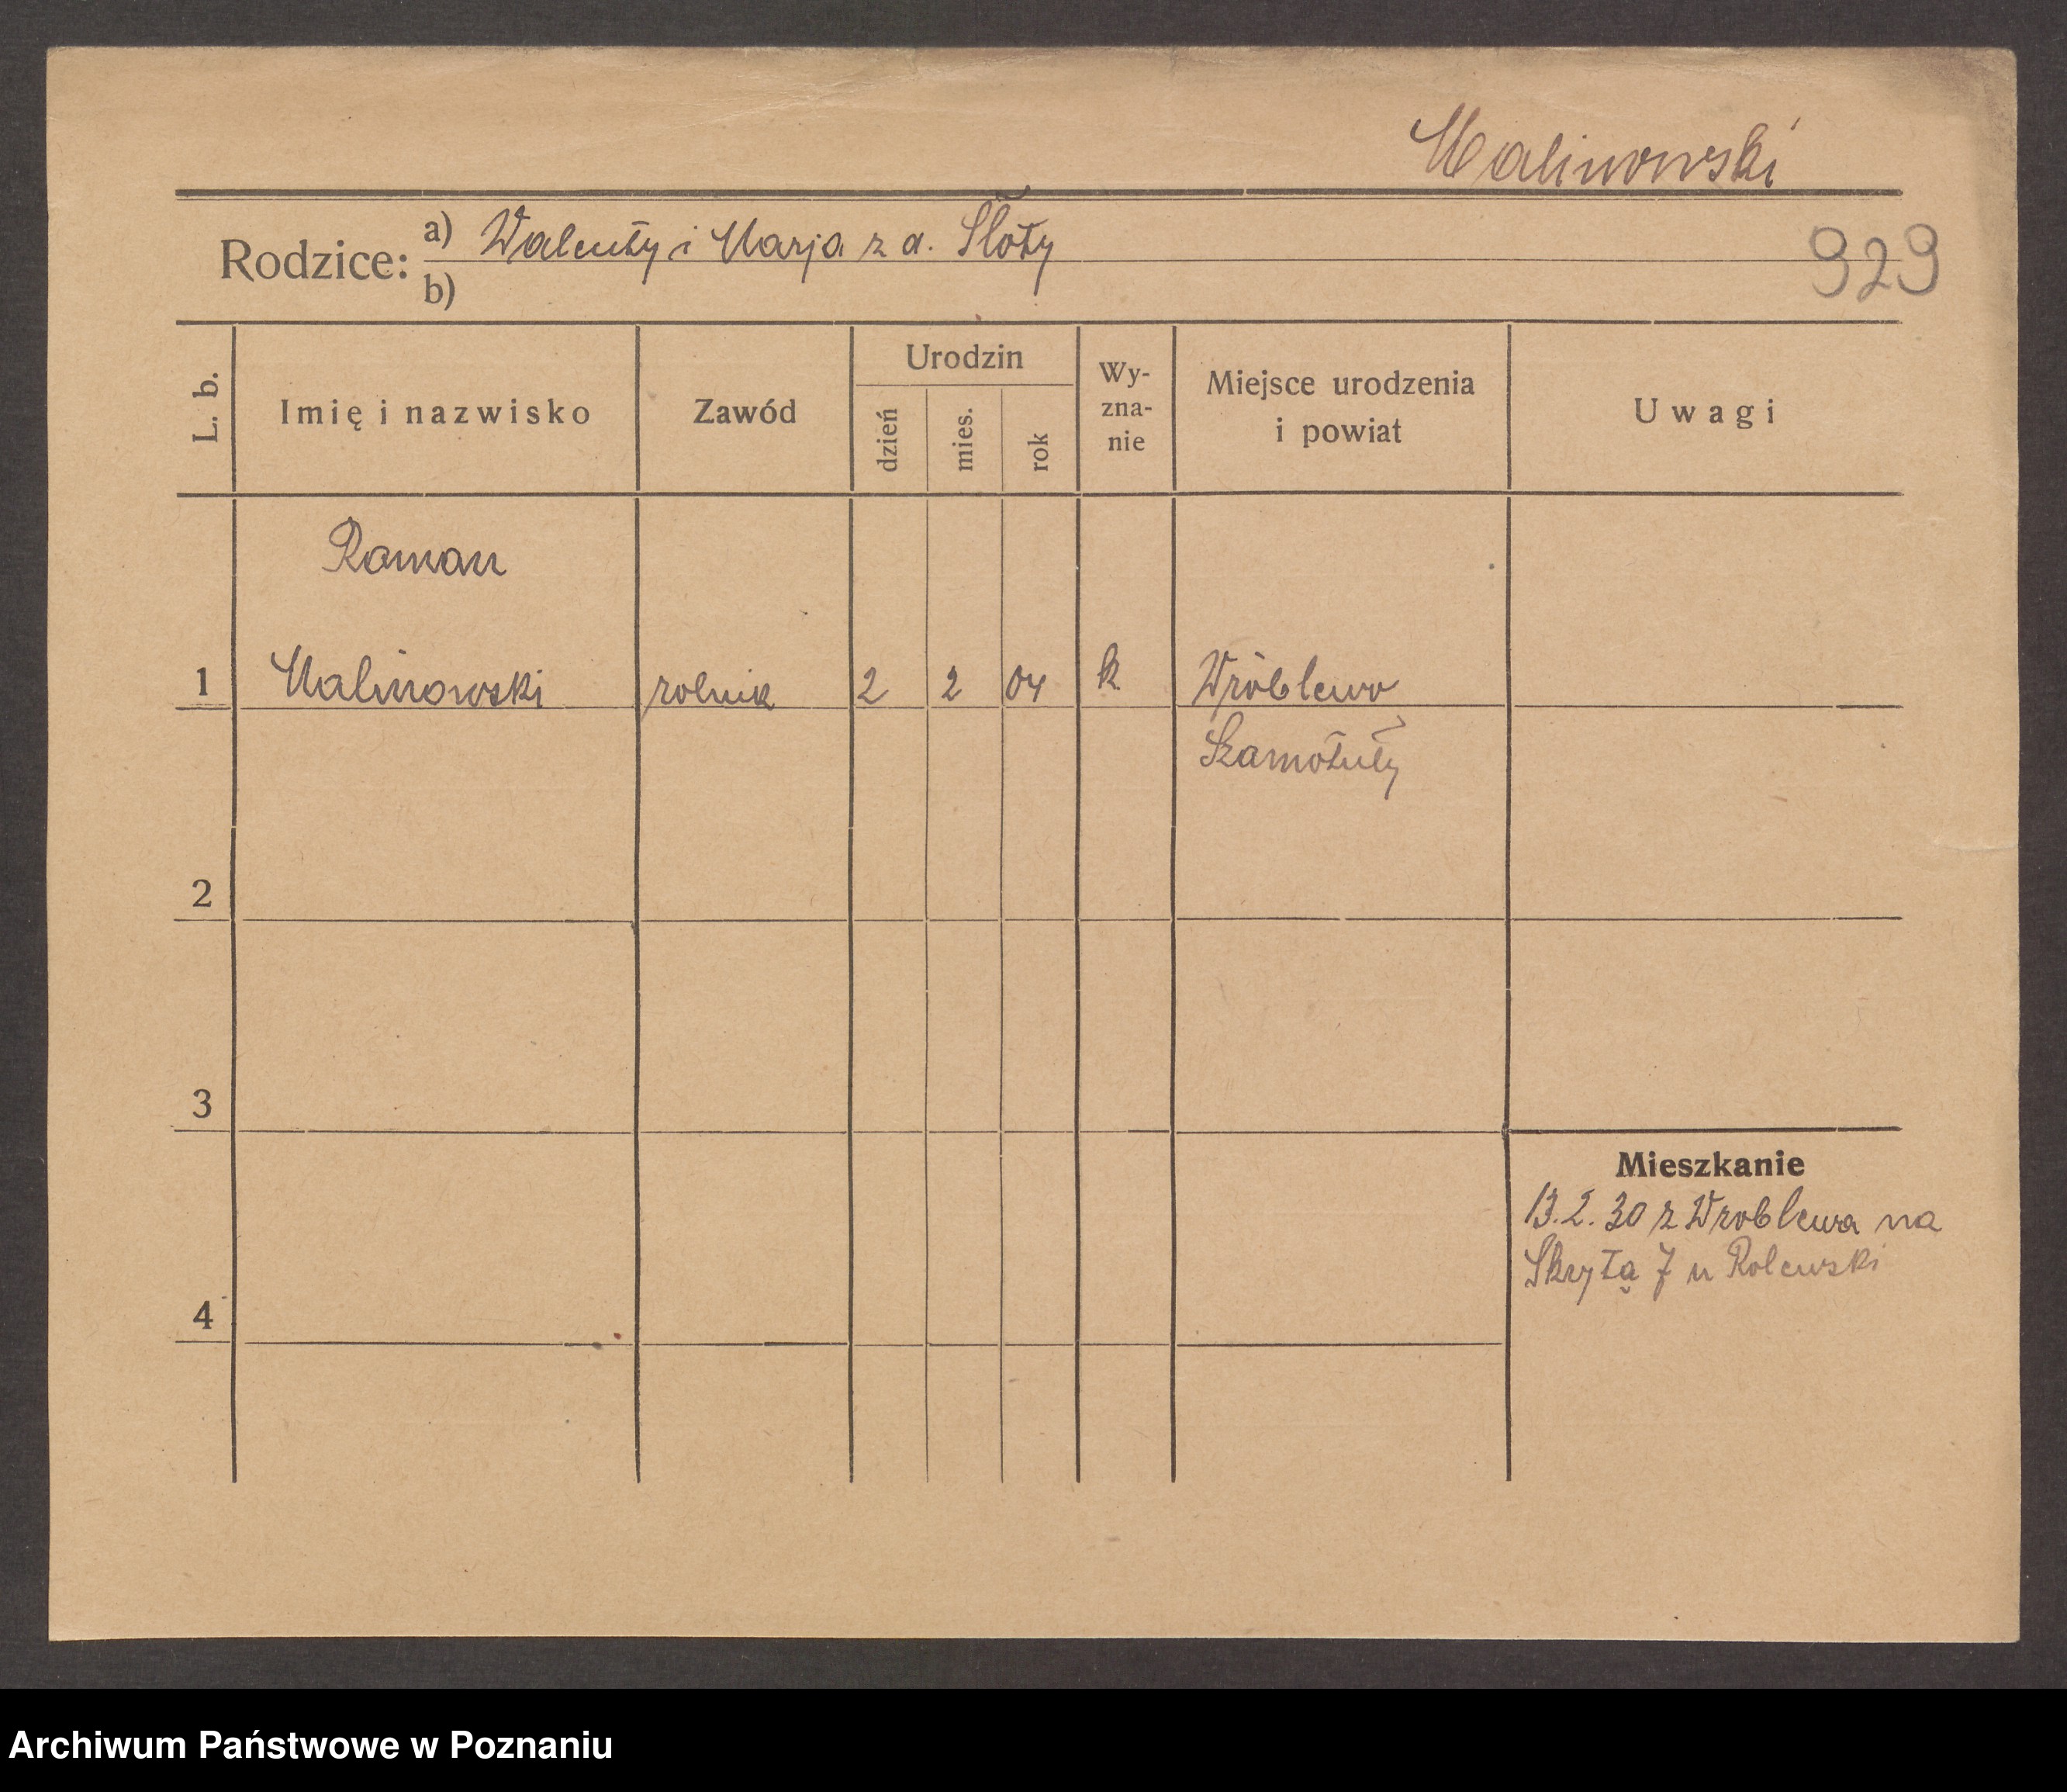 Malinowski
Rodzice: a) Walenty i Marja z d. Słoty
b)
929
L. b.
Imię i nazwisko
Zawód
Urodzin
dzień
mies.
rok
Wy-
zna-
nie
Miejsce urodzenia
i powiat
Uwagi
Roman
1 Malinowski rolnik 2 2 04 k Wróblewo
Szamotuły
2
3
4
Mieszkanie
13.2.30 z Wroblewa na
Skrytą 7 u Rolewski
Archiwum Państwowe w Poznaniu